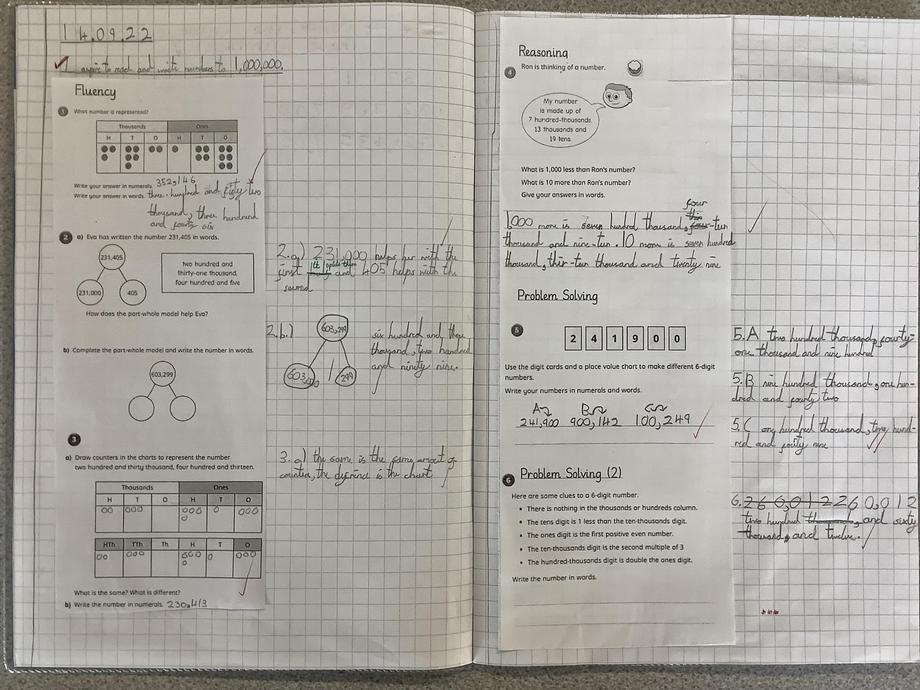 14.09.22
I aspire to read and write numbers to 1,000,000.
Fluency
1 What number is represented?
Thousands Ones
H T O H T O
Write your answer in numerals. 352,146
Write your answer in words. three-hundred and fifty two
thousand, three hundred
and fourty six
2 a) Eva has written the number 231,405 in words.
231,405
231,000 405
two hundred and
thirty-one thousand,
four hundred and five
How does the part-whole model help Eva?
b) Complete the part-whole model and write the number in words.
603,299
3
a) Draw counters in the charts to represent the number
two hundred and thirty thousand, four hundred and thirteen.
Thousands Ones
H T O H T O
HTh TTh Th H T O
What is the same? What is different?
b) Write the number in numerals. 230,413
2.a) 231,000 helps her with the
first and 405 helps with the
second
2.b.) 603,299
603,000 299
six hundred and three
thousand, two hundred
and ninety nine.
3.a) the same is the same amount of
counters, the difrence is the chart
Reasoning
4 Ron is thinking of a number.
My number
is made up of
7 hundred-thousands,
13 thousands and
19 tens.
What is 1,000 less than Ron's number?
What is 10 more than Ron's number?
Give your answers in words.
four
1000 more is seven hundred thousand, -teen
thousand and nine-ten. 10 more is seven hundred
thousand, thir-ten thousand and twenty nine
Problem Solving
5 2 4 1 9 0 0
Use the digit cards and a place value chart to make different 6-digit
numbers.
Write your numbers in numerals and words.
A B C
241,900 900,142 100,249
6 Problem Solving (2)
Here are some clues to a 6-digit number.
• There is nothing in the thousands or hundreds column.
• The tens digit is 1 less than the ten-thousands digit.
• The ones digit is the first positive even number.
• The ten-thousands digit is the second multiple of 3
• The hundred-thousands digit is double the ones digit.
Write the number in words.
5.A two hundred thousand, fourty-
one thousand and nine hundred
5.B nine hundred thousand, one hun-
dred and fourty two
5.C one hundred thousand, two hund-
red and fourty nine
6. 260,012 260,012
two hundred thousand, and sixty
thousand, and twelve.